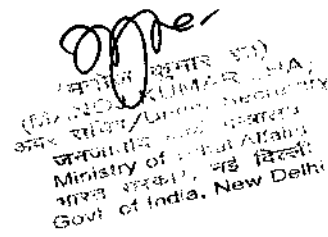 कुमार झा)
(MANOJ KUMAR JHA)
अवर सचिव/Under Secretary
मंत्रालय
Ministry of Tribal Affairs
भारत सरकार, नई दिल्ली
Govt. of India, New Delhi